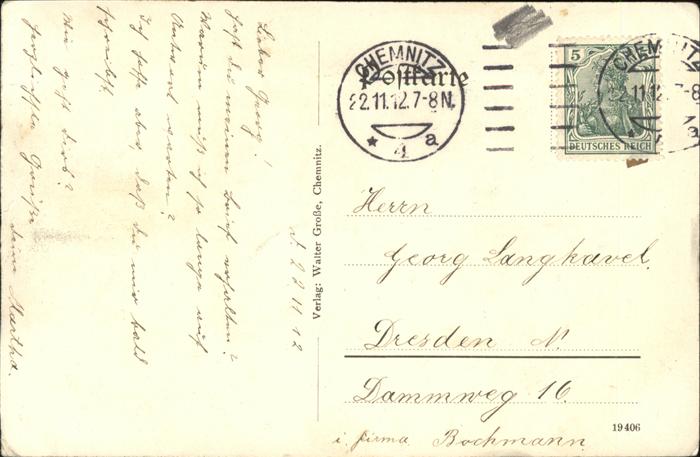 Lieber Georg!
Hast du meinen Brief erhalten?
Warum muß ich so lange auf
Antwort warten?
Ich hoffe aber daß du mir bald
schreibst.
Wie geht Dirs?
Herzlichste Grüße
deine Martha.
d. 22 11 12
Verlag: Walter Große, Chemnitz.
Postkarte
CHEMNITZ
22.11.12.7-8N.
* 4 a
5
DEUTSCHES REICH
CHEMNITZ
22.11.12.7-8
Herrn
Georg Langkavel.
Dresden N
Dammweg 16
i. Firma Bochmann
19406